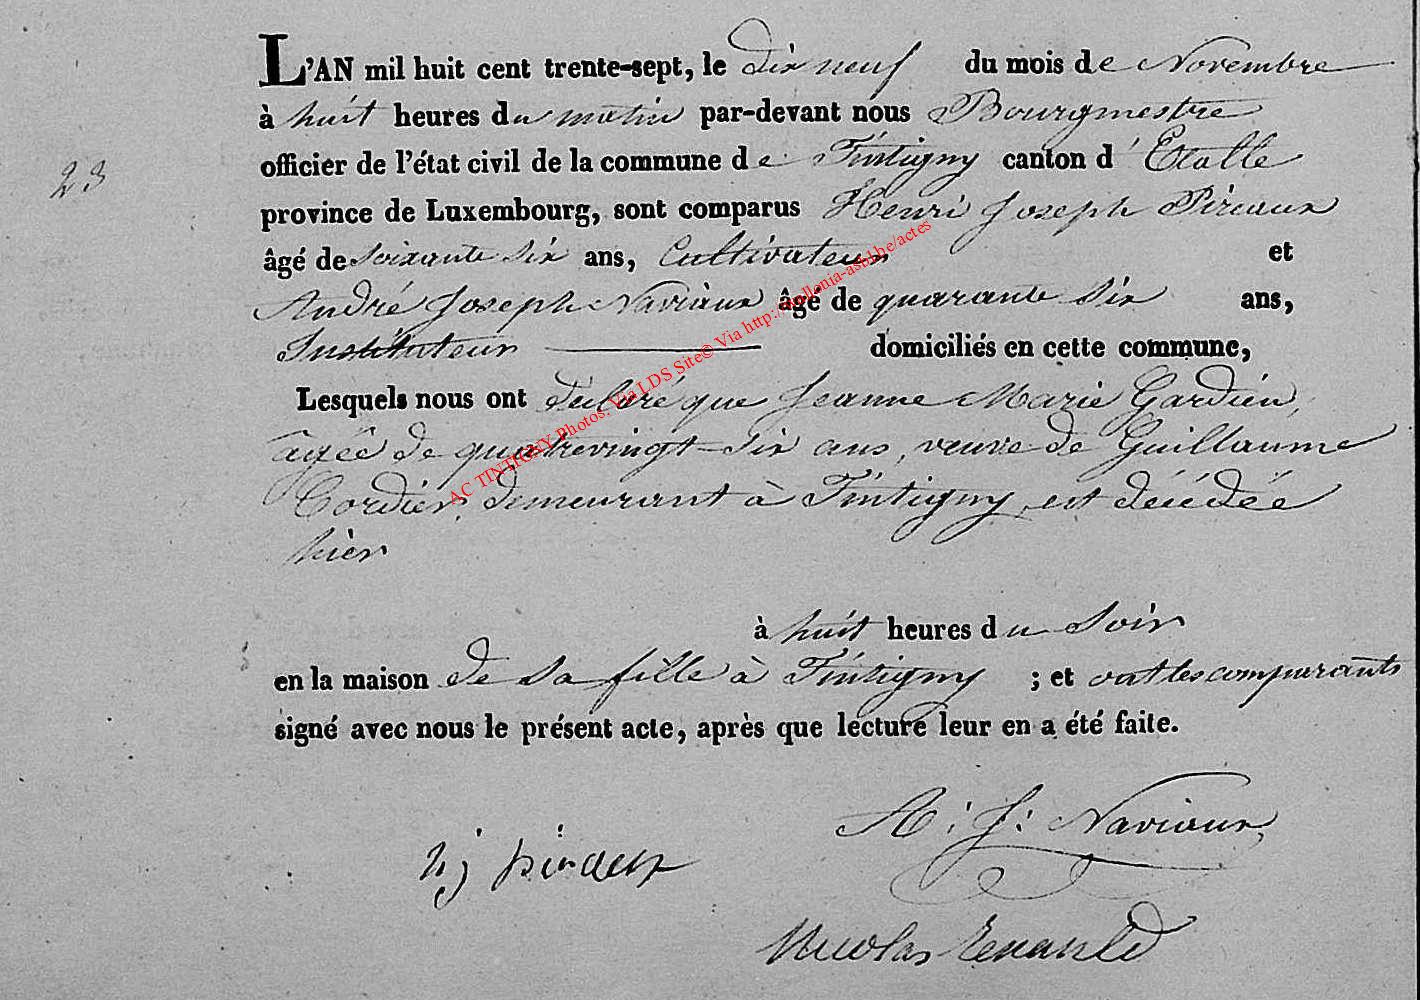 L'AN mil huit cent trente-sept, le dix neuf du mois de Novembre
à huit heures du matin par-devant nous Bourgmestre
23
officier de l'état civil de la commune de Tintigny canton d'Etalle
province de Luxembourg, sont comparus Henri Joseph Piréaux
âgé de soixante six ans, Cultivateur et
André Joseph Naviaux âgé de quarante six ans,
Instituteur domiciliés en cette commune,
Lesquels nous ont déclaré que Jeanne Marie Gardien,
âgée de quatrevingt-six ans, veuve de Guillaume
Cordier, demeurant à Tintigny, est décédée
hier
à huit heures du soir
en la maison de sa fille à Tintigny ; et ont les comparants
signé avec nous le présent acte, après que lecture leur en a été faite.
A: J: Naviaux
hj
Nicolas
AC TINTIGNY Photos, Via LDS Site© Via http://wallonia-asbl.be/actes